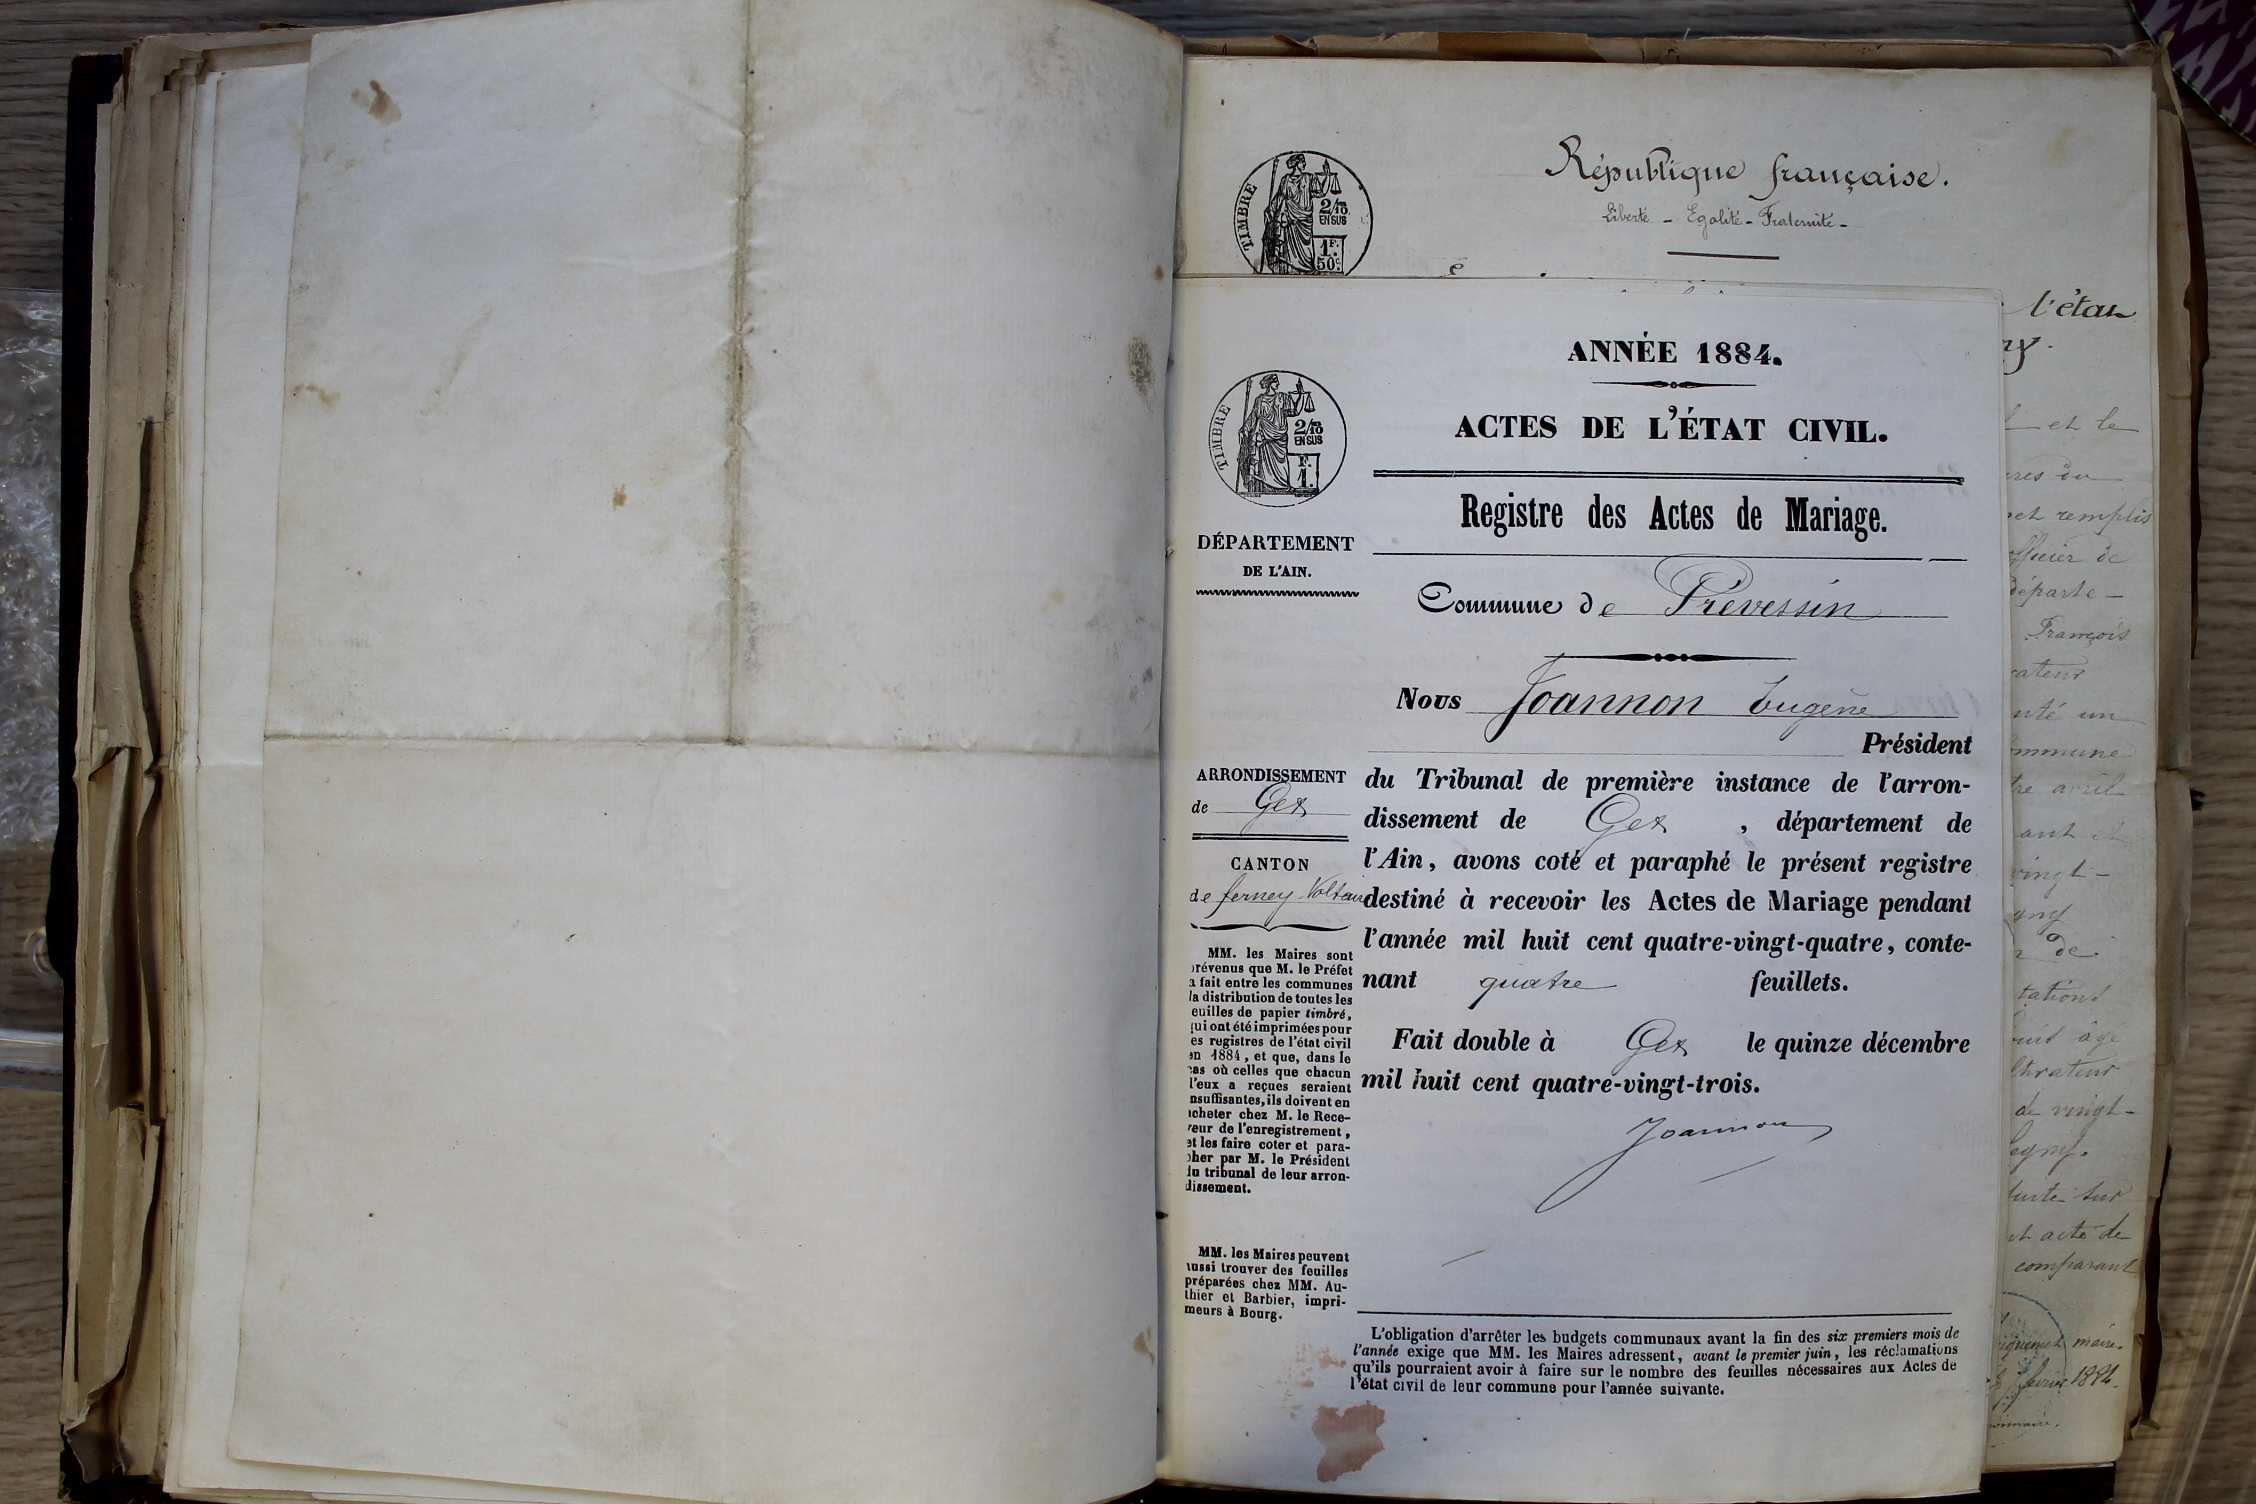 République française.
Liberté - Egalité - Fraternité -
TIMBRE
2/10
EN SUS
1F.
50c.
l'état
et le
remplis
officier de
départe-
François
un
avril
vingt-
de
âge
de vingt-
sur
acte de
comparant
maire.
ANNÉE 1884.
ACTES DE L'ÉTAT CIVIL.
Registre des Actes de Mariage.
Commune de Prévessin
Nous Joannon Eugène
Président
du Tribunal de première instance de l'arron-
dissement de Gex, département de
l'Ain, avons coté et paraphé le présent registre
destiné à recevoir les Actes de Mariage pendant
l'année mil huit cent quatre-vingt-quatre, conte-
nant quatre feuillets.
Fait double à Gex le quinze décembre
mil huit cent quatre-vingt-trois.
Joannon
L'obligation d'arrêter les budgets communaux avant la fin des six premiers mois de
l'année exige que MM. les Maires adressent, avant le premier juin, les réclamations
qu'ils pourraient avoir à faire sur le nombre des feuilles nécessaires aux Actes de
l'état civil de leur commune pour l'année suivante.
TIMBRE
2/10
EN SUS
F.
1.
DÉPARTEMENT
DE L'AIN.
ARRONDISSEMENT
de Gex
CANTON
de ferney-Voltair
MM. les Maires sont
révenus que M. le Préfet
a fait entre les communes
la distribution de toutes les
euilles de papier timbré,
qui ont été imprimées pour
es registres de l'état civil
en 1884, et que, dans le
cas où celles que chacun
d'eux a reçues seraient
nsuffisantes, ils doivent en
acheter chez M. le Rece-
veur de l'enregistrement,
et les faire coter et para-
pher par M. le Président
du tribunal de leur arron-
dissement.
MM. les Maires peuvent
aussi trouver des feuilles
préparées chez MM. Au-
thier et Barbier, impri-
meurs à Bourg.